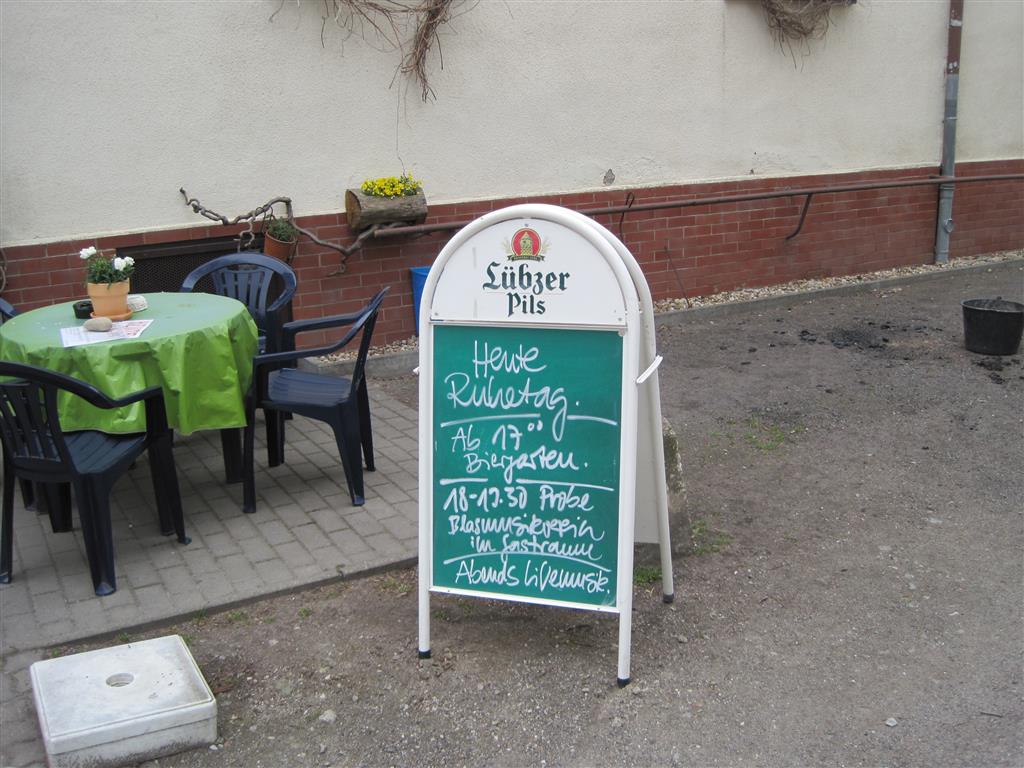 Lübzer
Pils
Heute
Ruhetag.
Ab 17⁰⁰
Biergarten.
18-19.30 Probe
Blasmusikverein
im Gastraum
Abends Livemusik.